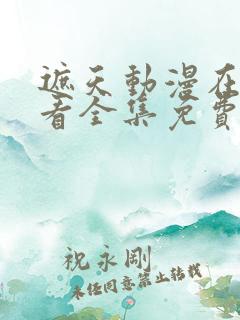 遮天動漫在
看全集免費
祝永剛
未任同意禁止转载